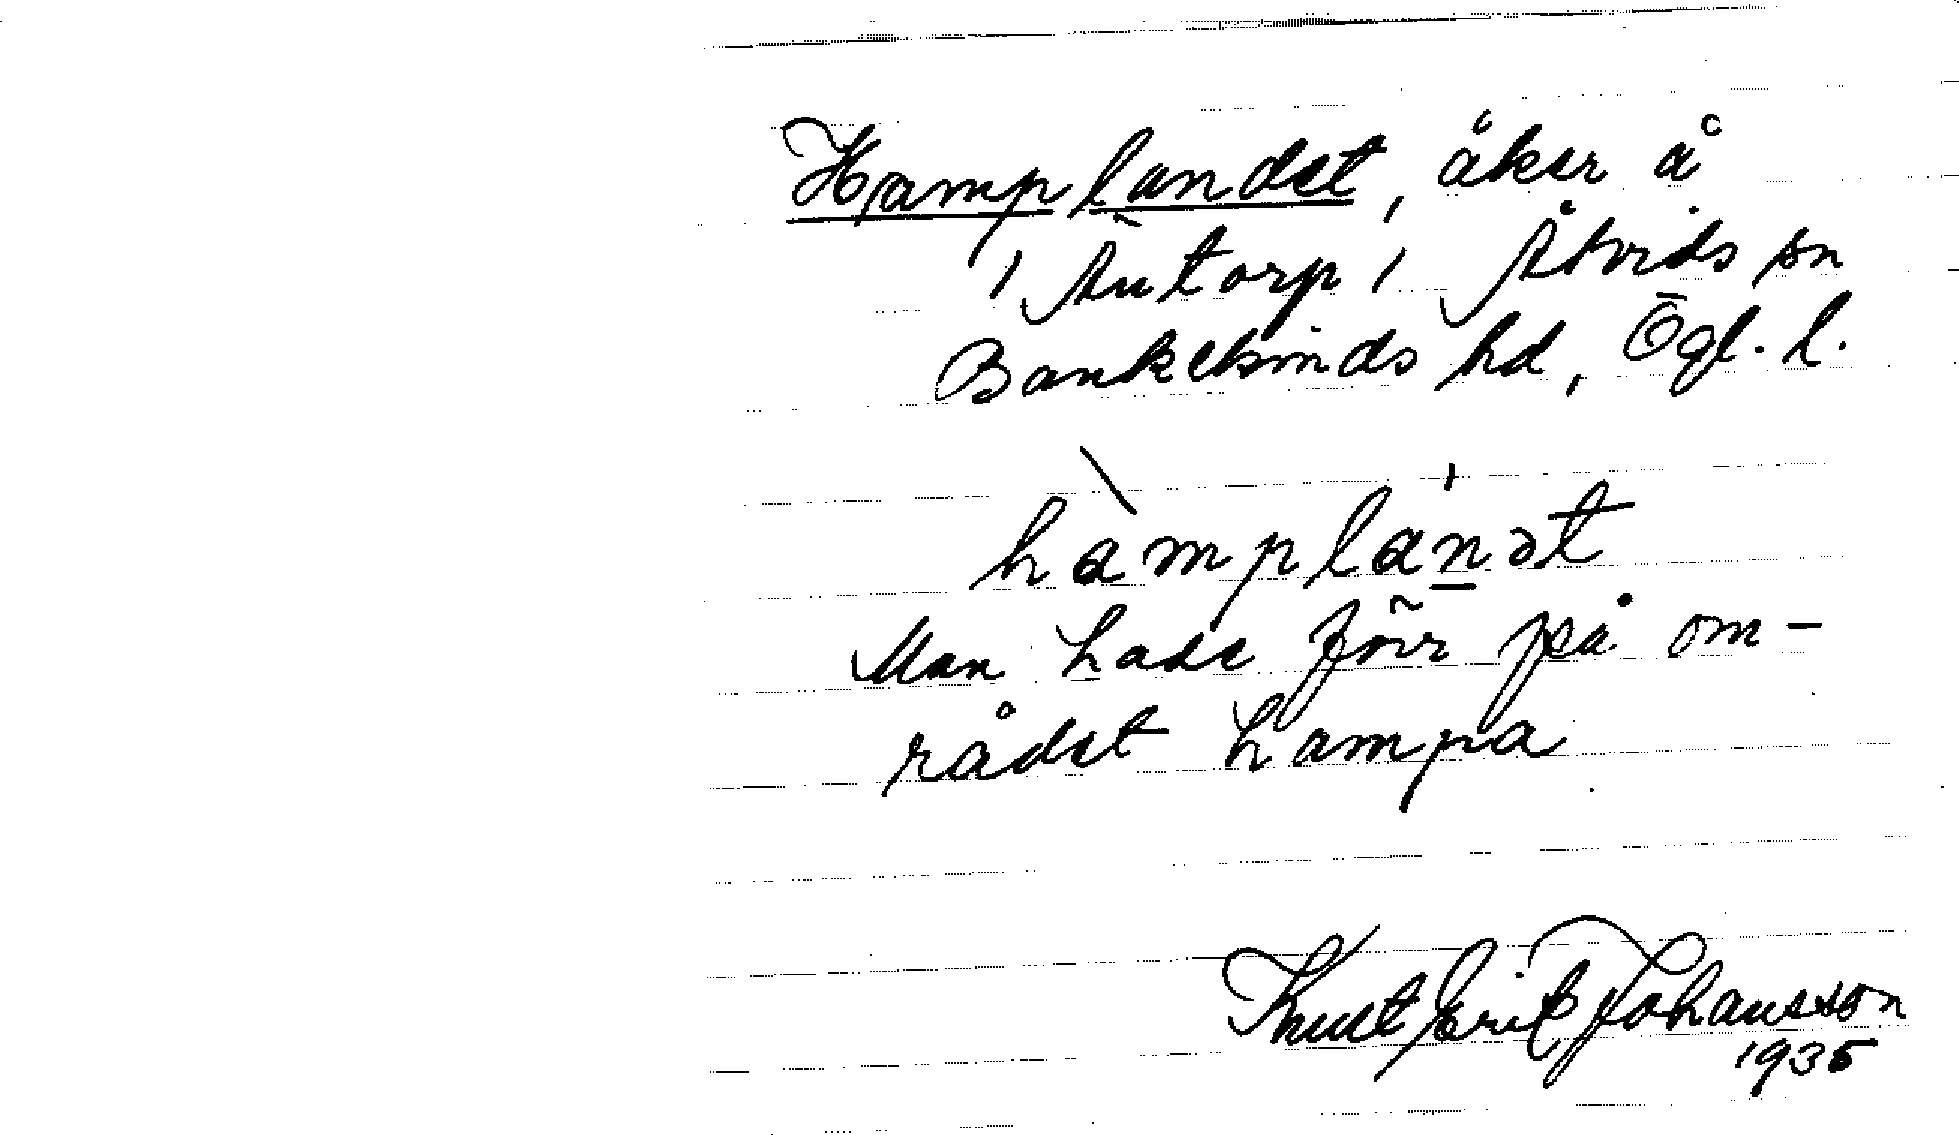 Hamplandet, åker å
Åtvids sn
Bankekinds hd, Ögl. l.
hamplanət
Man hade förr på om-
rådet hampa
Knut Erik Johansson
1935